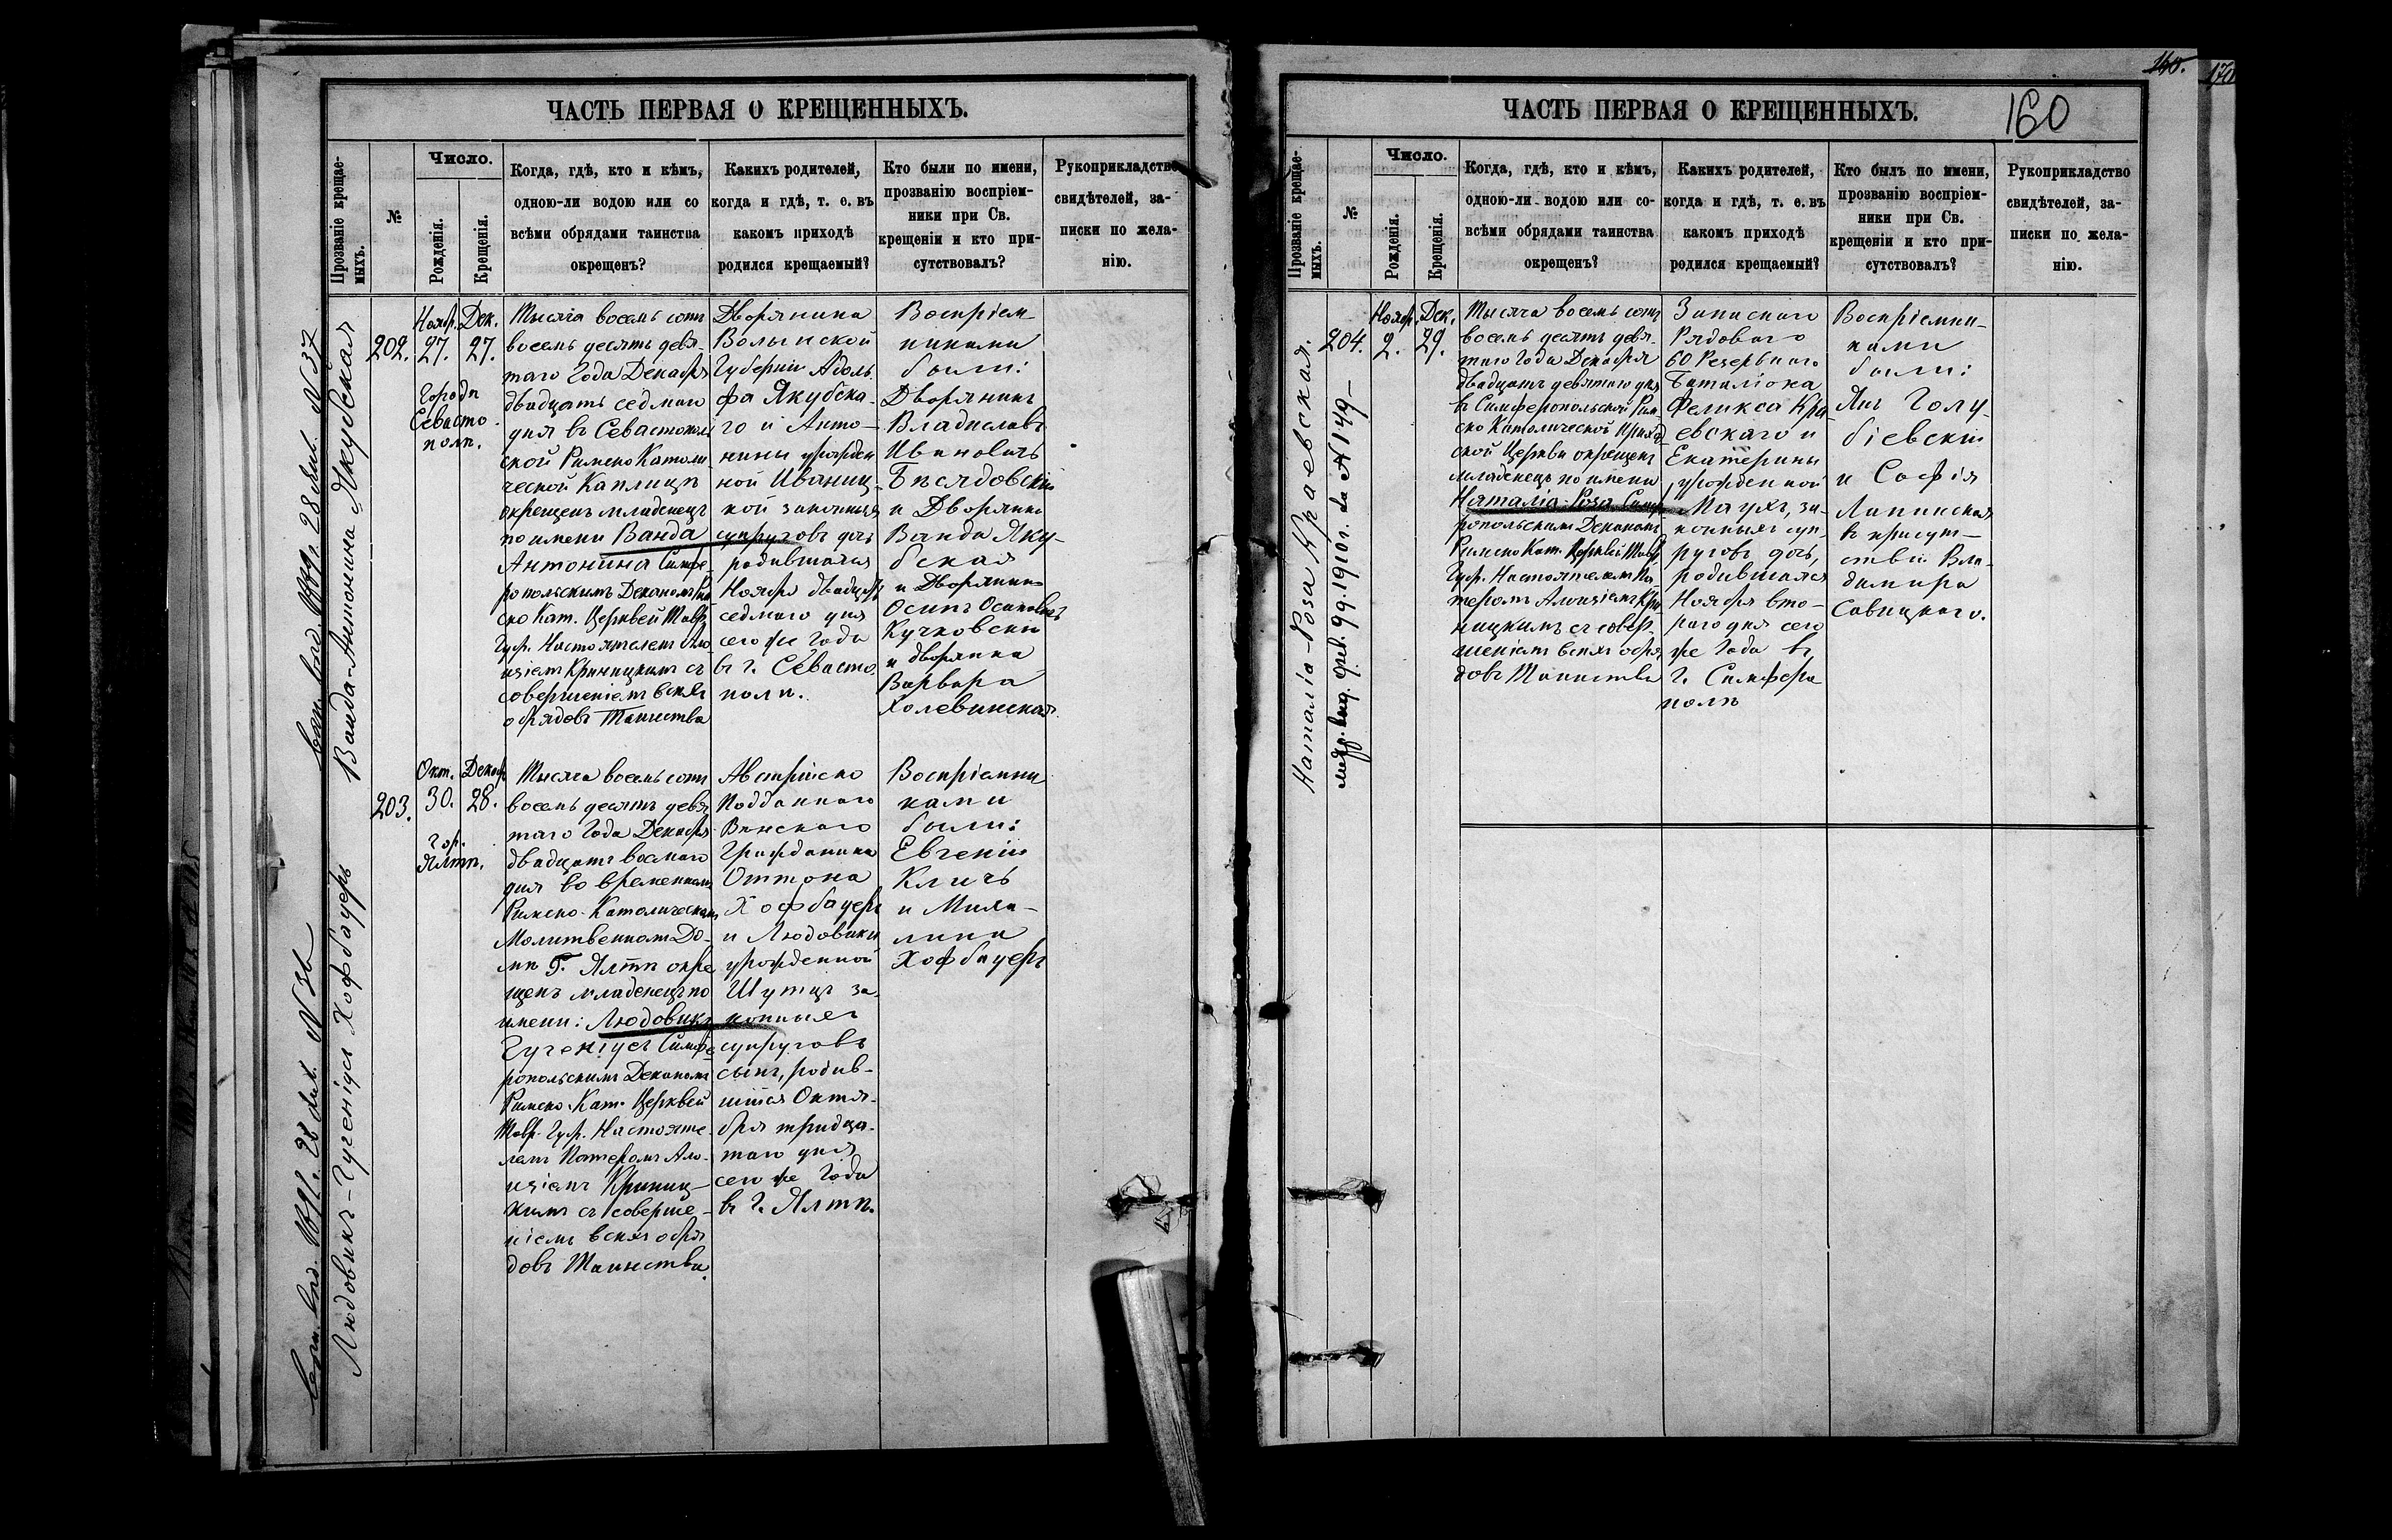 ЧАСТЬ ПЕРВАЯ О КРЕЩЕННЫХЪ.
Прозваніе крещае-
мыхъ.
№
Число.
Рожденія.
Крещенія.
Когда, гдѣ, кто и кѣмъ,
одною-ли водою или со
всѣми обрядами таинства
окрещенъ?
Какихъ родителей,
когда и гдѣ, т. е. въ
какомъ приходѣ
родился крещаемый?
Кто были по имени,
прозванію воспріем-
ники при Св.
крещеніи и кто при-
сутствовалъ?
Рукоприкладство
свидѣтелей, за-
писки по жела-
нію.
28 № 37
Ванда-Антонина Якубская
202.
Ноябр.
27.
Дек.
27.
Города
Севасто
полѣ.
Тысяча восемь сотъ
восемь десять девя-
таго Года Декабря
двадцать седмаго
дня въ Севастополь
ской Римско Католи-
ческой Каплицѣ
окрещенъ младенецъ
по имени Ванда
Антонина Симфе-
ропольскимъ Деканомъ Рим
ско Кат. Церквей Тавр.
Губ. Настоятелемъ Ало
изіемъ Криницкимъ съ
совершеніемъ всѣхъ
обрядовъ Таинства
Дворянина
Волынской
Губерніи Адоль
фа Якубска-
го и Анто-
нины урожден
ной Иваниц-
кой законныхъ
супруговъ дочь
родившаяся
Ноября двадцать
седмаго дня
сего же Года
въ г. Севасто
полѣ.
Воспріем-
никами
были:
Дворянинъ
Владиславъ
Ивановичъ
Бѣсядовскій
и Дворянка
Ванда Яку-
бская
и Дворянинъ
Осипъ Осиповичъ
Кучковскій
и дворянка
Варвара
Холевинская.
№ 36
Людовикъ-Гугеніусъ Хофбауеръ
203.
Окт.
30.
Декаб.
28.
гор.
Ялтѣ.
Тысяча восемь сотъ
восемь десять девя
таго Года Декабря
двадцать восмаго
дня во временномъ
Римско-Католическомъ
Молитвенномъ До-
мѣ Г. Ялтѣ окре
щенъ младенецъ по
имени: Людовикъ
Гугеніусъ Симфе
ропольскимъ Деканомъ
Римско-Кат. Церквей
Тавр. Губ. Настояте
лемъ Патеромъ Ало-
изіемъ Криниц-
кимъ съ соверше-
ніемъ всѣхъ обря
довъ Таинства.
Австрійско
Подданнаго
Вѣнскаго
Гражданина
Оттона
Хофбауеръ
и Людовики
урожденной
Шутцъ за-
конныхъ
супруговъ
сынъ, родив-
шійся Октя-
бря тридца-
таго дня
сего же Года
въ г. Ялтѣ.
Воспріемни
ками
были:
Евгеній
Кличъ
и Мила-
лина
Хофбауеръ
ЧАСТЬ ПЕРВАЯ О КРЕЩЕННЫХЪ.
160
160.
170
Прозваніе крещае-
мыхъ.
№
Число.
Рожденія.
Крещенія.
Когда, гдѣ, кто и кѣмъ,
одною-ли водою или со-
всѣми обрядами таинства
окрещенъ?
Какихъ родителей,
когда и гдѣ, т. е. въ
какомъ приходѣ
родился крещаемый?
Кто былъ по имени,
прозванію воспріем-
ники при Св.
крещеніи и кто при-
сутствовалъ?
Рукоприкладство
свидѣтелей, за-
писки по жела-
нію.
Наталія-Роза Краевская.
1910 г. за № 149-
204.
Ноябр.
2.
Дек.
29.
Тысяча восемь сотъ
восемь десять девя-
таго Года Декабря
двадцать девятаго дня
въ Симферопольской Рим-
ско Католической Приход
ской Церкви окрещенъ
младенецъ по имени
Наталія-Роза Симфе
ропольскимъ Деканомъ
Римско Кат. Церквей Тавр.
Губ. Настоятелемъ Па-
теромъ Алоизіемъ Кри
ницкимъ съ совер-
шеніемъ всѣхъ обря
довъ Таинства
Запаснаго
Рядоваго
60 Резервнаго
Баталіона
Феликса Кра
евскаго и
Екатерины
урожденной
Маухъ, за-
конныхъ суп-
руговъ дочь,
родившаяся
Ноября вто-
раго дня сего
же Года въ
г. Симферо
полѣ
Воспріемни-
ками
были:
Янъ Голу-
біевскій
и Софія
Липинская
въ присут-
ствіи Вла-
димира
Савицкаго.